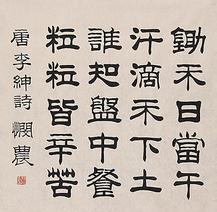 鋤禾日當午
汗滴禾下土
誰知盤中餐
粒粒皆辛苦
唐李紳詩 憫農